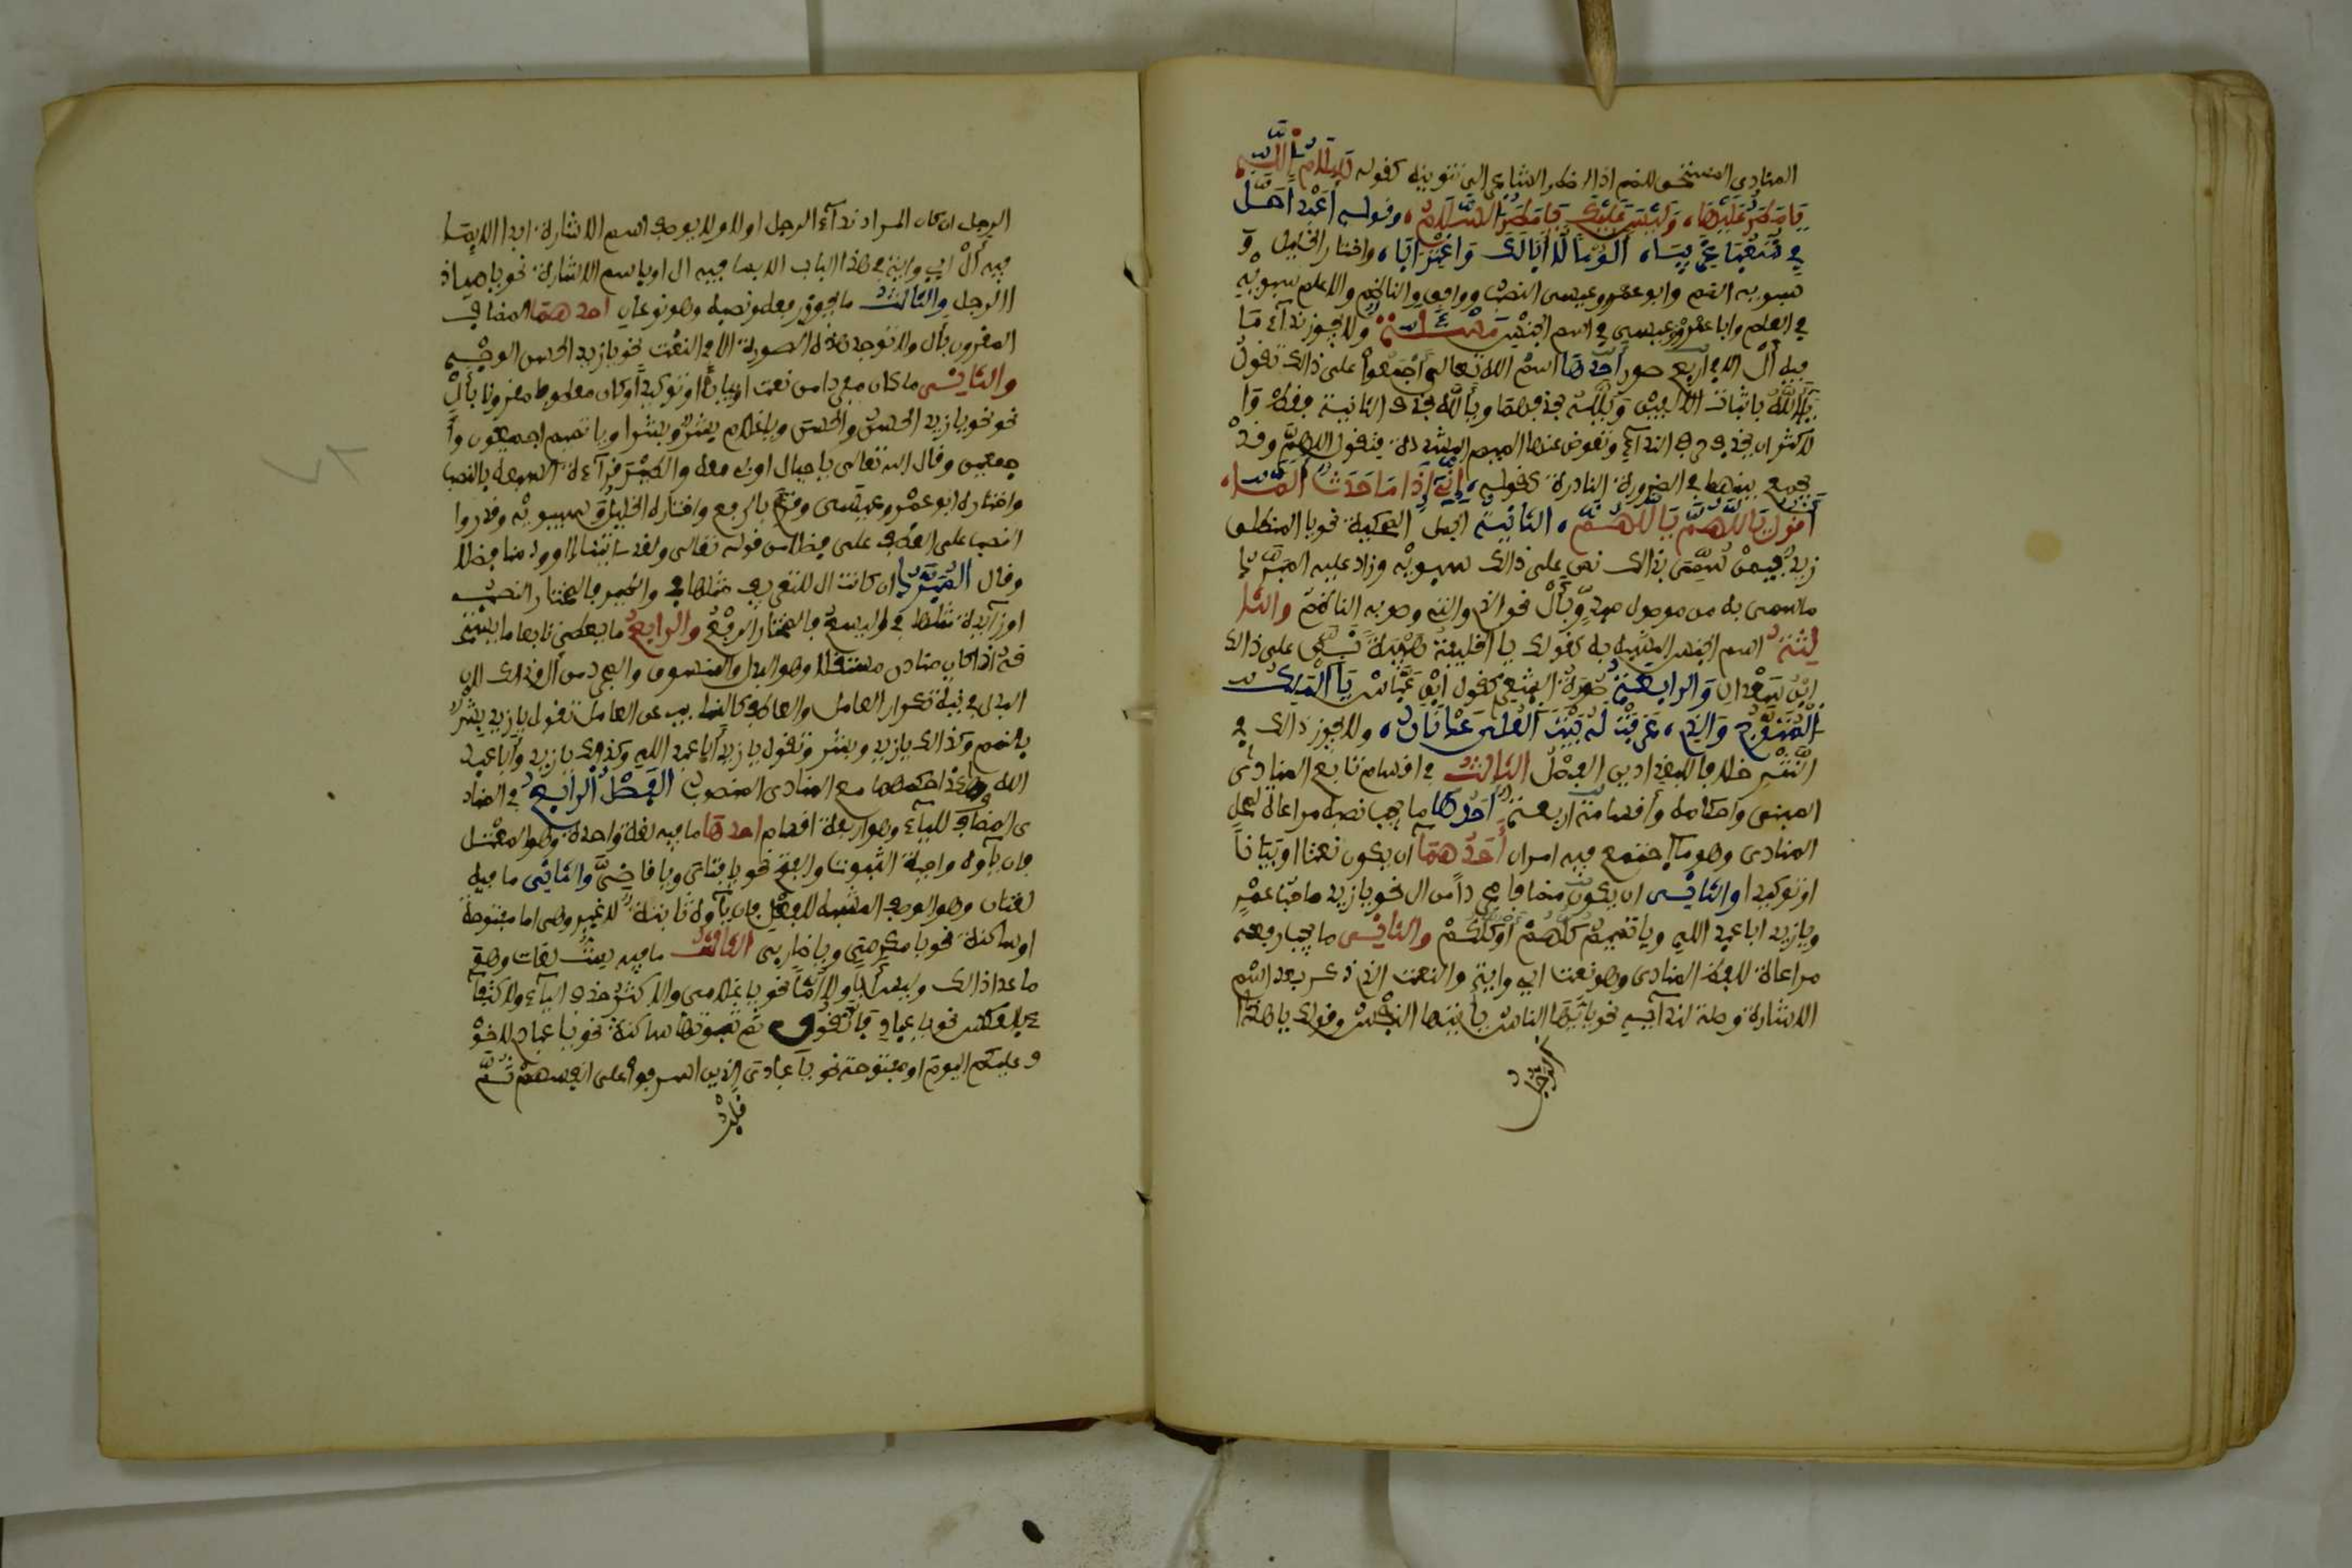 المنادى المستحق للضم اذا اضطر الشاعر الى تنوينه كقوله سلام الله
يا مطر عليها، وليس عليك يا مطر السلام، وقوله اعبدا حل
في شعبى غريبا، ألؤما لا ابا لك واغترابا، واختار الخليل و
سيبويه الضم وابو عمرو وعيسى النصب ووافق الناظم والاعلم سيبويه
في العلم وابا عمرو وعيسى في اسم الجنس مسألة ولا يجوز ندآء ما
فيه أل الا في اربع صور احدها اسم الله تعالى أجمعوا على ذالك تقول
يا ألله باثبات الالفين ويلله بحذفهما ويا لله بحذف الثانية فقط وا
لاكثر ان يحذف حرف الندآء وتعوض عنها الميم المشددة فتقول اللهم وقد
يجمع بينهما في الضرورة النادرة كقوله، إني إذا ما حدث ألما،
أقول يا اللهم يا اللهم، الثانية الجمل المحكية نحو يا المنطلق
زيد فيمن سمى بذالك نص على ذالك سيبويه وزاد عليه المبرد
ما سمى به من موصول مبدو بأل نحو الذي والتي وصوبه الناظم والثا
لثة اسم الجنس المشبه به كقولك يا الخليفة هيبة نص على ذالك
ابن سعدان والرابعة ضرورة الشعر كقوله عباس يا الملك
المتوج والذي، عرفت له بيت العلى عدنان، ولا يجوز ذالك في
النثر خلافا للبغداديين الفصل الثالث في اقسام تابع المنادى
المبنى واحكامه وأقسامه أربعة أحدها ما يجب نصبه مراعاة لمحل
المنادى وهو ما اجتمع فيه امران أحدهما ان يكون نعتا او بيانا
او توكيدا والثانى ان يكون مضافا مجردا من ال نحو يا زيد صاحب عمرو
ويا زيد ابا عبد الله ويا تميم كلهم أو كلكم والثانى ما يجب رفعه
مراعاة للفظ المنادى وهو نعت اي واية والنعت الذي بعد اسم
الاشارة وصلة لندآئه نحو يا أيها الناس يا أيتها النفس وقولك يا هذا
الرجل
الرجل ان كان المراد ندآء الرجل اولا ولا يوصف اسم الاشارة ابدا الا بما
فيه أل اي واية في هذا الباب الا بما فيه ال او باسم الاشارة نحو يا ايهاذ
االرجل والثالث ما يجوز رفعه ونصبه وهو نوعان احدهما المضاف
المقرون بأل ولا توجد هذه الصورة الا في النعت نحو يا زيد الحسن الوجه
والثانى ما كان مفردا من نعت او بيان او توكيد أو كان معطوفا مقرونا بأل
نحو نحو يا زيد الحسن والحسن ويا غلام بشر وبشرا ويا تميم اجمعون وأ
جمعين وقال الله تعالى يا جبال اوبى معه والطير قرآءة السبعة بالنصب
واختاره ابو عمرو وعيسى وقرئ بالرفع واختاره الخليل وسيبويه وقدروا
النصب على العطف على فضلا من قوله تعالى ولقد ءاتينا داوود منا فضلا
وقال المبرد ان كانت ال للتعريف مثلها في والطير فالمختار النصب
او زآئدة مثلها في واليسع فالمختار الرفع والرابع ما يعطى تابعا ما يستحـ
قه اذا كان منادى مستقلا وهو البدل والمنسوق والمجرد من ال وذالك لان
البدل في نية تكرار العامل والعاطف كالنايب عن العامل تقول يا زيد بشر
بالضم وكذالك يا زيد وبشر وتقول يا زيد أبا عبد الله وكذالك يا زيد وأبا عبد
الله وهكذا حكمهما مع المنادى المنصوب الفصل الرابع في المناد
ى المضاف للياء وهو اربعة اقسام احدها ما فيه لغة واحدة وهو المعتل
فان يآءه واجبة الثبوت والفتح نحو يا فتاى ويا قاضي والثانى ما فيه
لغتان وهو الوصف المشبه للفعل فان يآءه ثابتة لا غير وهى اما مفتوحة
او ساكنة نحو يا مكرمى ويا ضاربى الثالث ما فيه ست لغات وهو
ما عدا ذالك وليس أبا ولا أما نحو يا غلامى والاكثر حذف اليآء والاكتفآ
ء بالكسرة نحو يا عباد فاتقون ثم ثبوتها ساكنة نحو يا عباد لا خو
ف عليكم اليوم او مفتوحة نحو يا عبادى الذين اسرفوا على انفسهم ثم
قلب